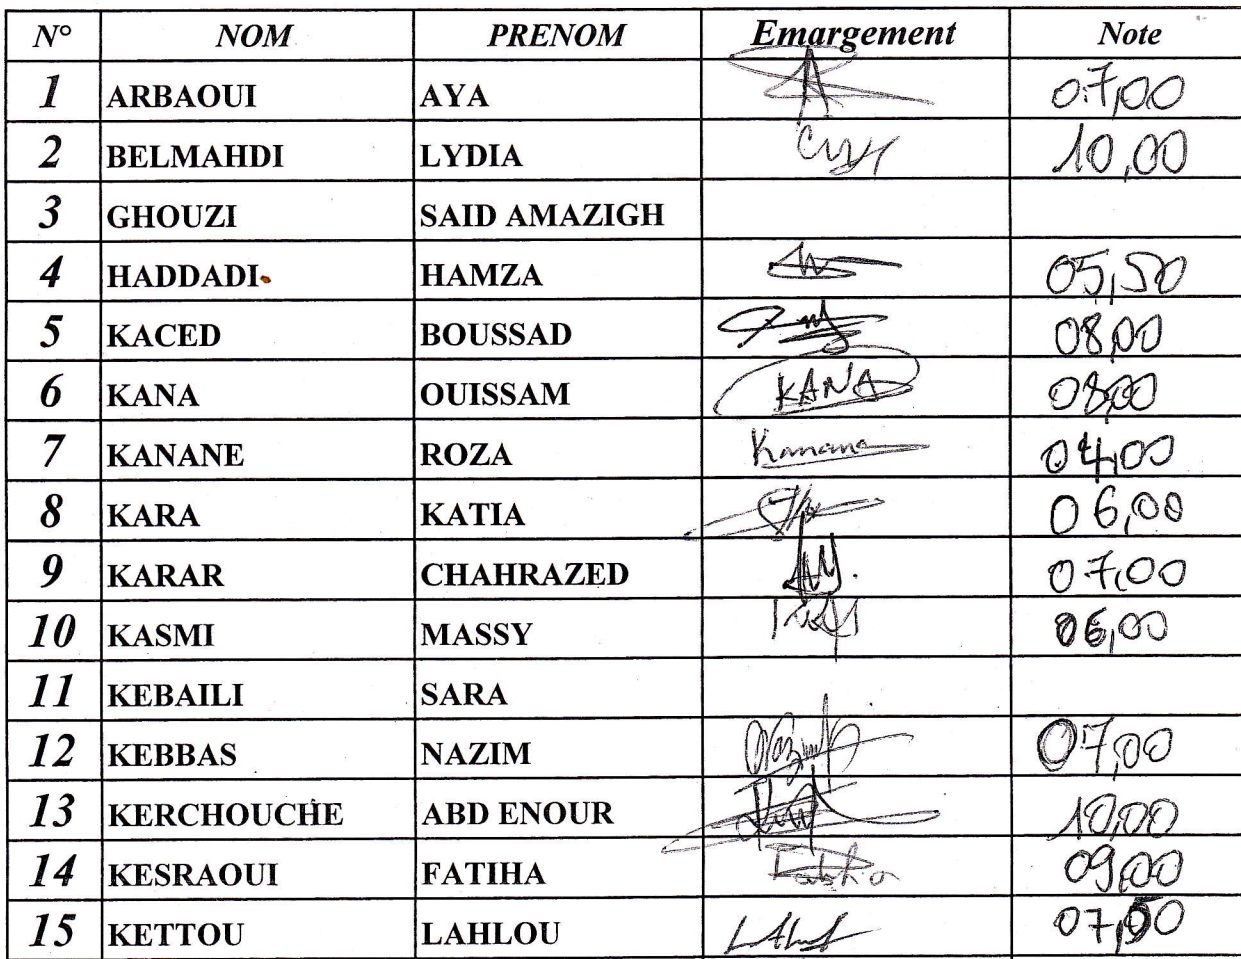 N° NOM PRENOM Emargement Note
1 ARBAOUI AYA 07,00
2 BELMAHDI LYDIA 10,00
3 GHOUZI SAID AMAZIGH
4 HADDADI HAMZA 05,50
5 KACED BOUSSAD 08,00
6 KANA OUISSAM KANA 08,00
7 KANANE ROZA Kanane 04,00
8 KARA KATIA 06,00
9 KARAR CHAHRAZED 07,00
10 KASMI MASSY 06,00
11 KEBAILI SARA
12 KEBBAS NAZIM 07,00
13 KERCHOUCHE ABD ENOUR 10,00
14 KESRAOUI FATIHA Fatiha 09,00
15 KETTOU LAHLOU 07,50